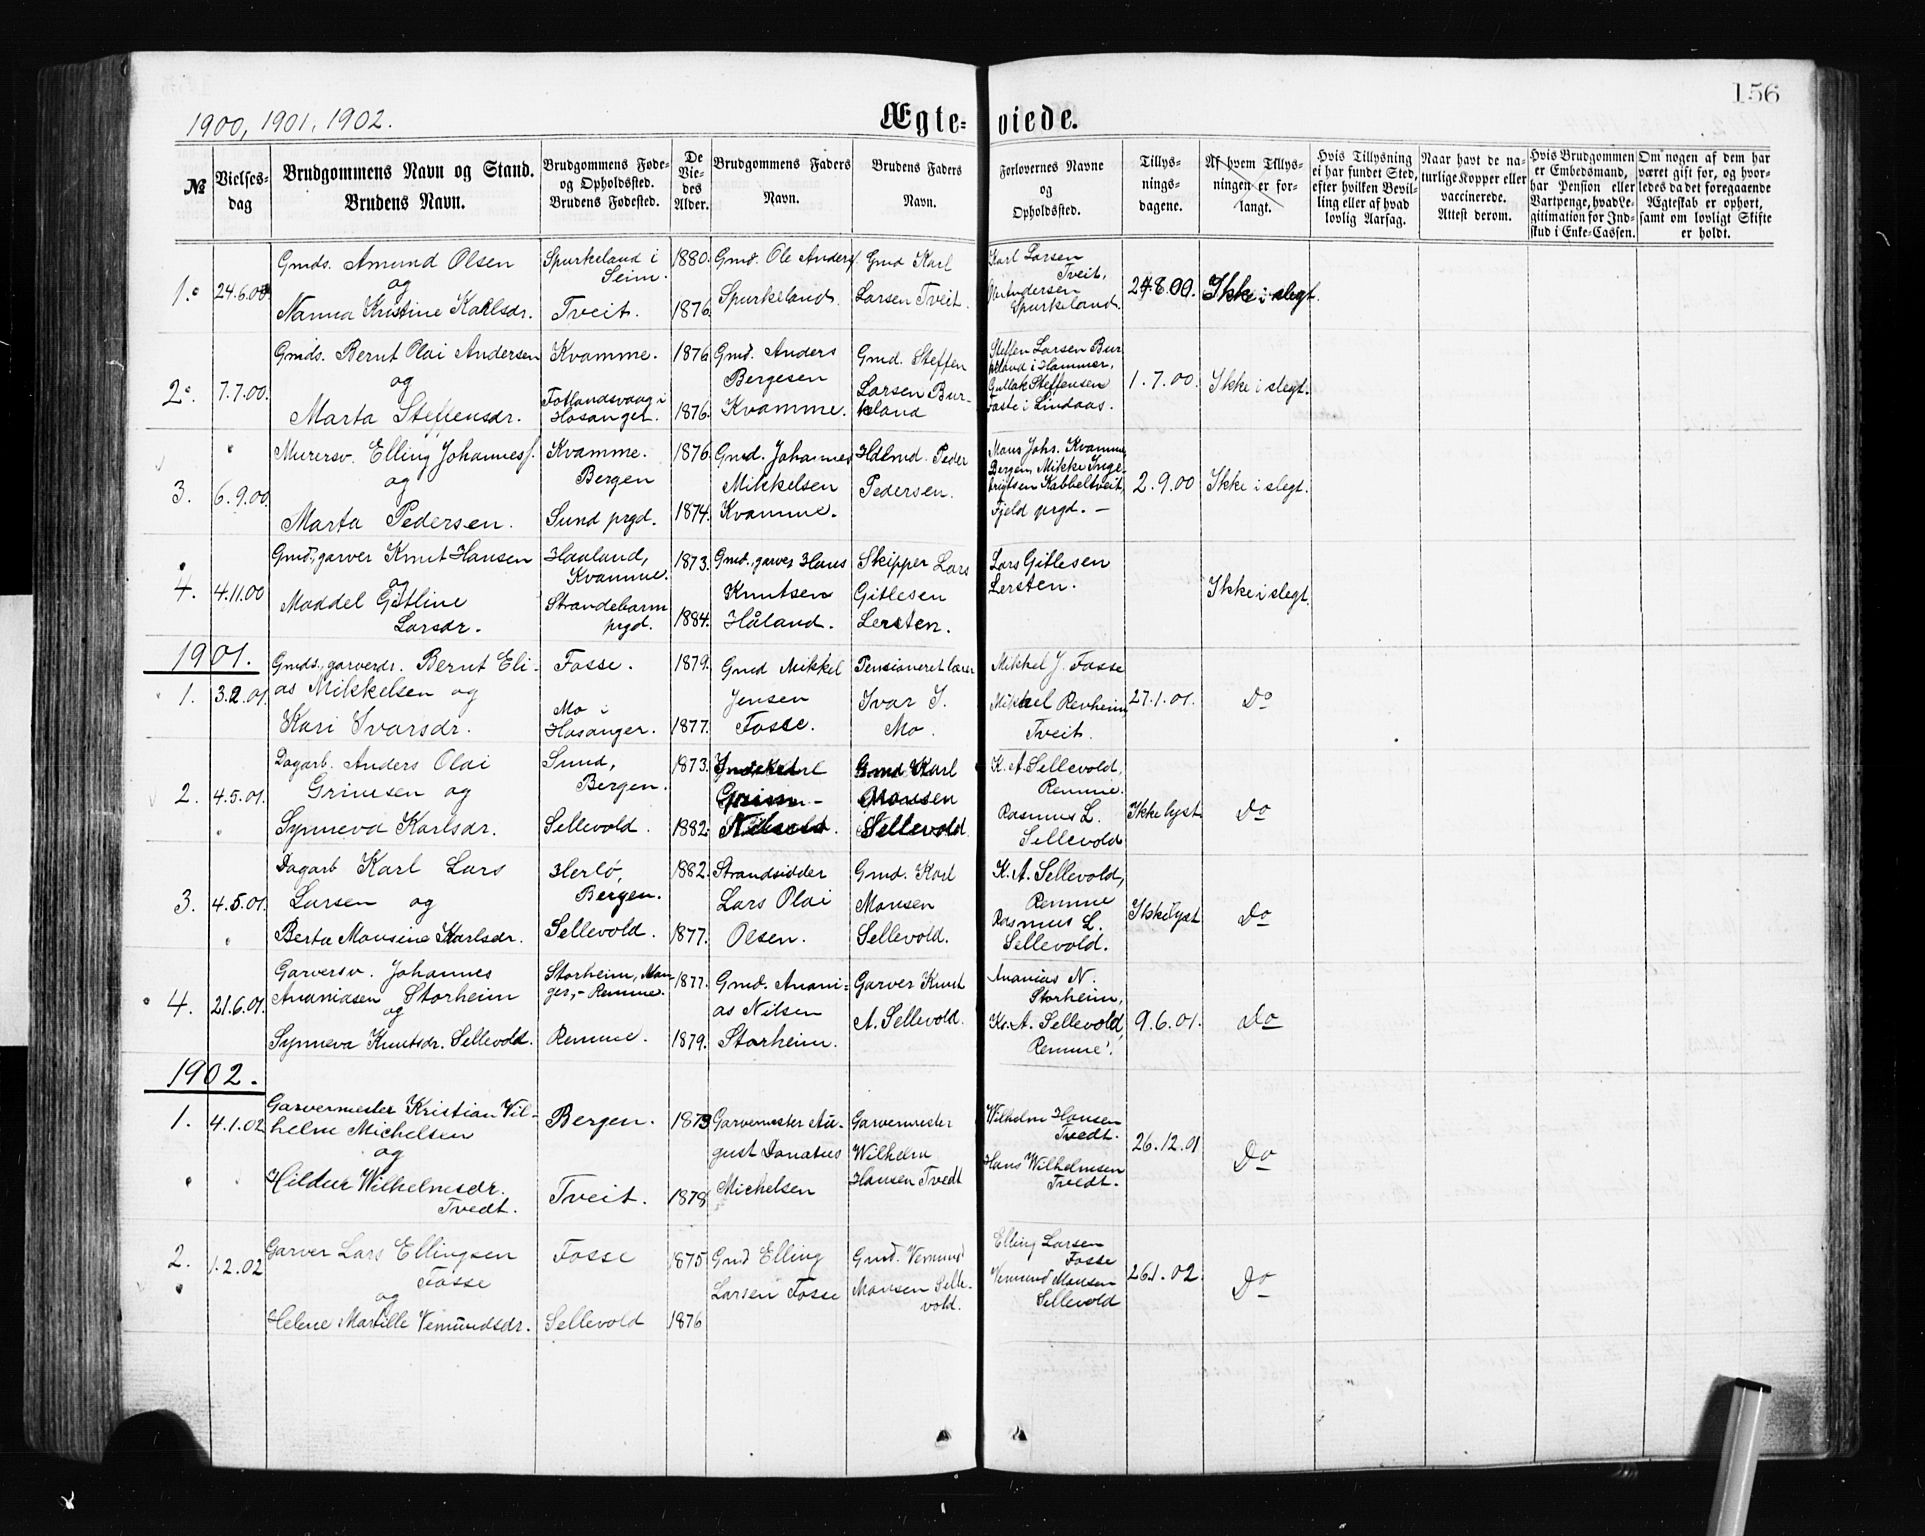 156
1900, 1901, 1902.
Ægte-viede.
№
Vielses-dag
Brudgommens Navn og Stand.
Brudens Navn.
Brudgommens Føde- og Opholdssted.
Brudens Fødested.
De Vie-des Alder.
Brudgommens Faders Navn.
Brudens Faders Navn.
Forlovernes Navne og Opholdssted.
Tillys-nings-dagene.
Af hvem Tillys-ningen er for-langt.
Hvis Tillysning ei har fundet Sted, efter hvilken Bevil-ling eller af hvad lovlig Aarsag.
Naar havt de na-turlige Kopper eller vaccinerede. Attest derom.
Hvis Brudgommen er Embedsmand, har Pension eller Vartpenge, hvad Le-gitimation for Ind-skud i Enke-Cassen.
Om nogen af dem har været gift før, og hvor-ledes da det foregaaende Ægteskab er ophørt, samt om lovligt Skifte er holdt.
1. 24.6.00
Gmds. Amund Olsen
og
Nanna Kristine Karlsdr.
Spurkeland i
Seim.
Tveit.
1880.
1876.
Gmd. Ole Anders.
Spurkeland.
Gmd Karl
Larsen Tveit.
Karl Larsen
Tveit.
Ole Andersen
Spurkeland.
Ikke i slegt.
2. 7.7.00.
Gmds. Bernt Olai Andersen
og
Marta Steffensdr.
Kvamme.
Fotlandsvaag i
Hosanger.
1876
1876.
Gmd. Anders
Bergesen
Kvamme.
Gmd. Steffen
Larsen Bur-
keland
Steffen Larsen Bur
keland i Hammer,
Gullak Steffensen
Foste i Lindaas.
1.7.00.
Ikke i slegt.
3. 6.9.00.
Murersv. Elling Johannes.
og
Marta Pedersen.
Kvamme.
Bergen
Sund prgd.
1876.
1874.
Gmd. Johannes
Mikkelsen
Kvamme.
Hdlmd. Peder
Pedersen.
Mons Johs. Kvamme,
Bergen, Mikke Inge
brigtsen Kabbeltveit,
Fjeld prgd. –
2.9.00
Ikke i slegt.
4. 4.11.00
Gmds. garver Knut Hansen
og
Maddel Gitline
Larsdr.
Haaland,
Kvamme.
Strandebarm
prgd.
1873.
1884.
Gmd., garver Hans
Knutsen
Håland.
Skipper Lars
Gitlesen
Lersten.
Lars Gitlesen
Lersten.
Ikke i slegt.
1901.
1. 3.2.01.
Gmds., garverdr. Bernt Eli-
as Mikkelsen og
Kari Ivarsdr.
Fosse.
Mo i
Hosanger.
1879.
1877.
Gmd Mikkel
Jensen
Fosse.
Pensioneret lærer
Ivar I.
Mo.
Mikkel J. Fosse
Mikkel Revheim,
Tveit.
27.1.01.
Do
2. 4.5.01.
Dagarb. Anders Olai
Grimsen og
Synneva Karlsdr.
Sund,
Bergen.
Sellevold.
1873.
1882.
Gmd Karl
Monsen
Sellevold
K. A. Sellevold,
Remme.
Rasmus L.
Sellevold
Ikke lyst
Do
3. 4.5.01.
Dagarb Karl Lars
Larsen og
Berta Monsine Karlsdr.
Herlø,
Bergen.
Sellevold.
1882.
1877.
Strandsidder
Lars Olai
Olsen.
Gmd. Karl
Monsen
Sellevold.
K. A. Sellevold,
Remme
Rasmus L.
Sellevold.
Ikke lyst
Do
4. 21.6.01.
Garversv. Johannes
Ananiasen Storheim
og
Synneva Knutsdr. Sellevold.
Storheim, Man-
ger, - Remme.
Remme.
1877.
1879.
Gmd. Anani-
as Nilsen
Storheim.
Garver Knut
A. Sellevold.
Ananias N.
Storheim,
Kn. A. Sellevold,
Remme.
9.6.01.
Do
1902.
1. 4.1.02
Garvermester Kristian Vil-
helm Michelsen
og
Hildur Wilhelmsdr.
Tvedt.
Bergen.
Tveit.
1873
1878
Garvermester Au-
gust Donatus
Michelsen
Garvermester
Wilhelm
Hansen Tvedt
Wilhelm Hansen
Tvedt.
Hans Wilhelmsen
Tvedt.
26.12.01
Do
2. 1.2.02
Garver Lars Ellingsen
Fosse
og
Helene Martille Vemundsdr.
Fosse
Sellevold
1875
1876
Gmd Elling
Larsen Fosse
Gmd. Vemund
Monsen Selle-
vold.
Elling Larsen
Fosse
Vemund Monsen
Sellevold
26.1.02
Do